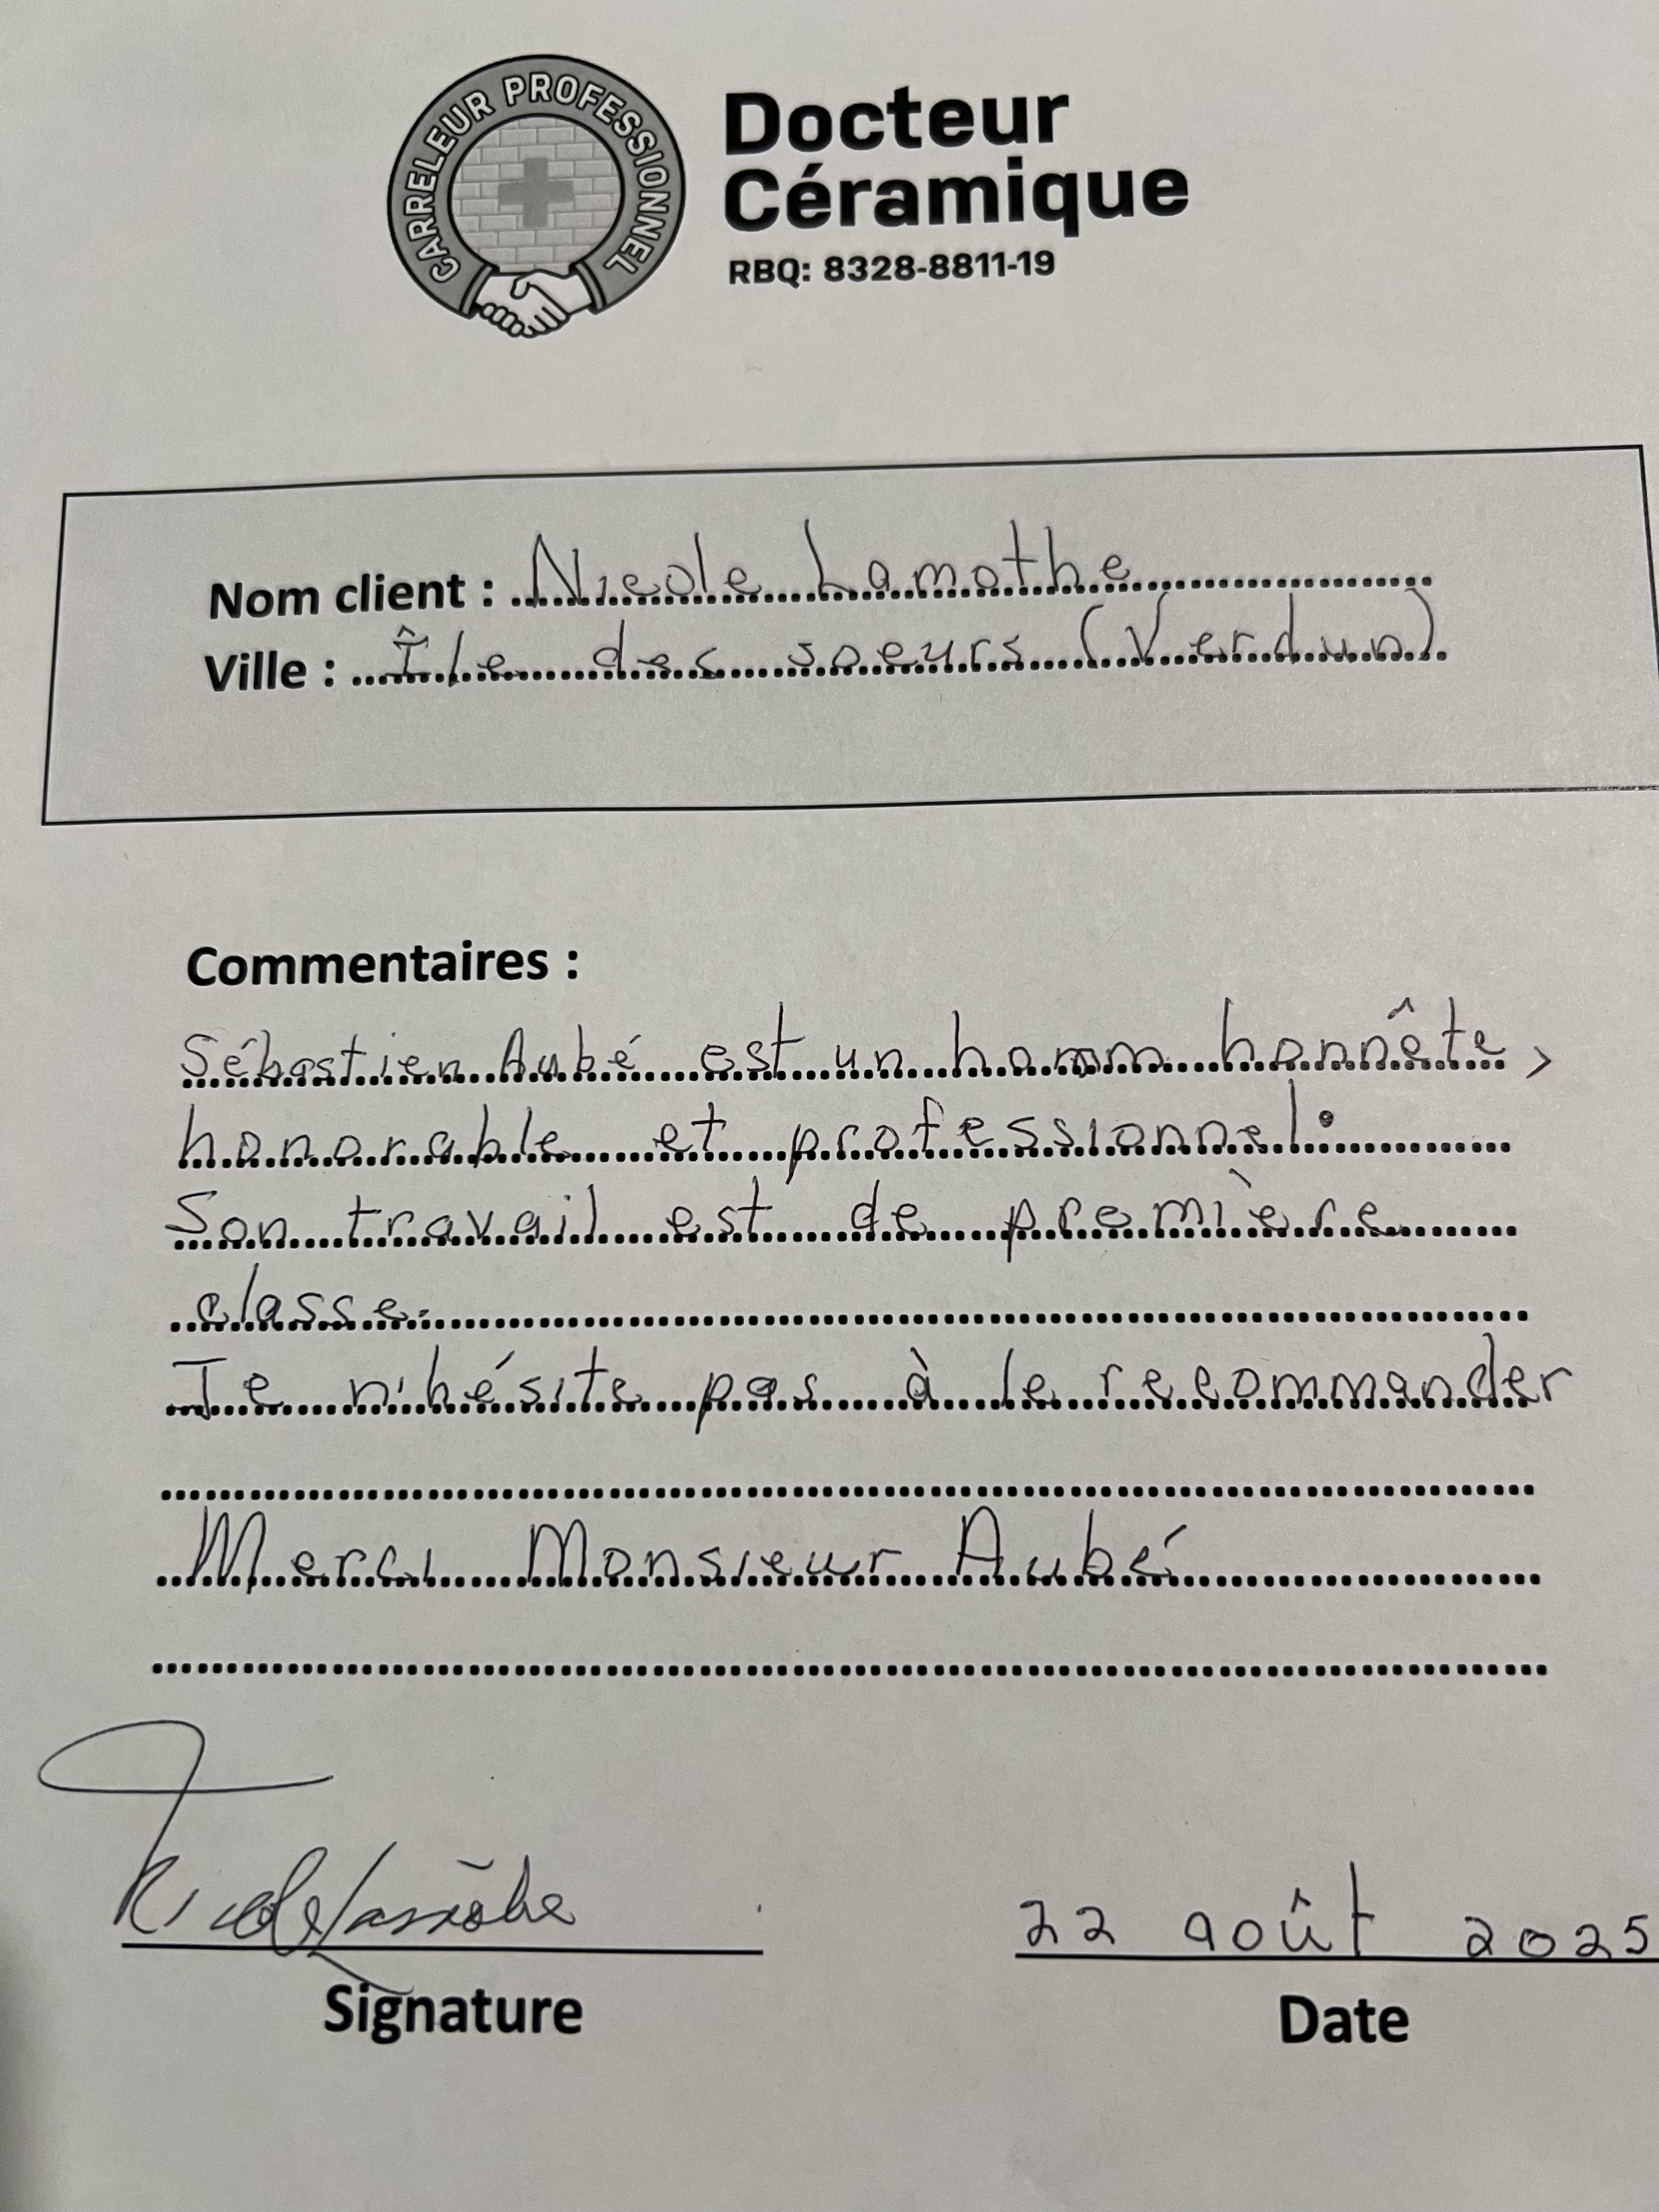 CARRELEUR PROFESSIONNEL
Docteur
Céramique
RBQ: 8328-8811-19
Nom client : Nicole Lamothe
Ville : Île des soeurs (Verdun)
Commentaires :
Sébastien Aubé est un homm honnête,
honorable et professionnel.
Son travail est de première
classe.
Je n'hésite pas à le recommander
Merci Monsieur Aubé
Nicole Lamothe
22 août 2025
Signature
Date